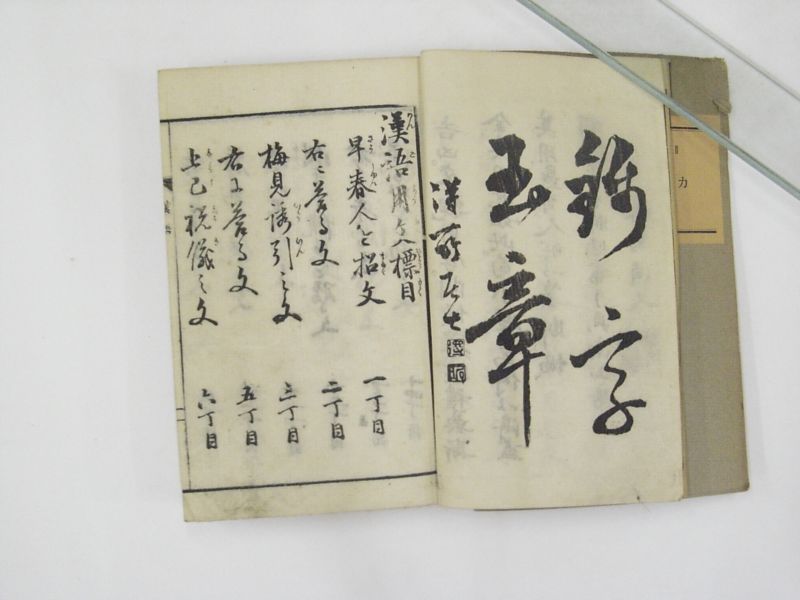 字
玉章
漢語用文標目
早春人を招文
一丁目
右に答る文
二丁目
梅見誘引之文
三丁目
右に答る文
五丁目
上巳祝儀之文
六丁目
カ